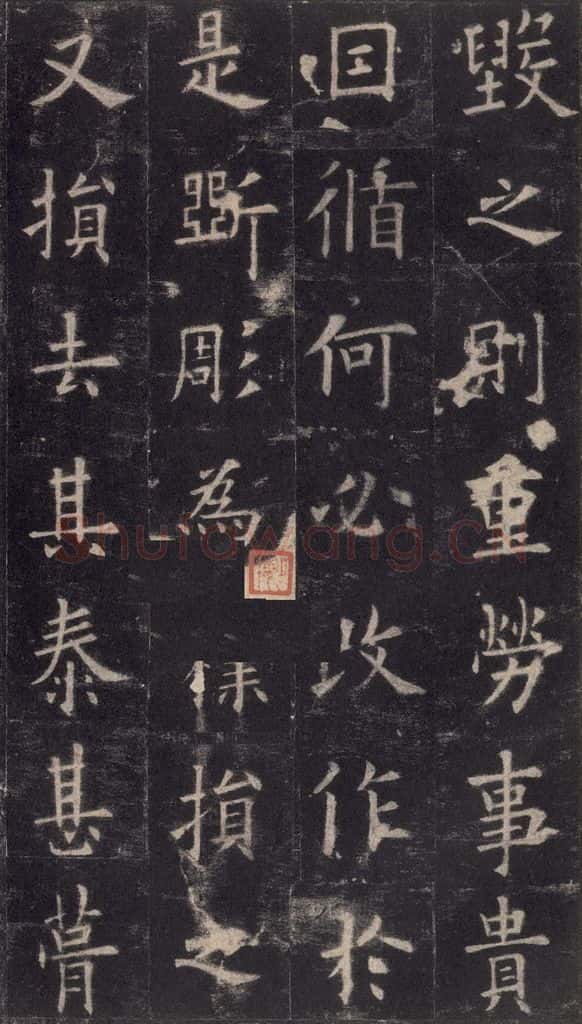 毀之則重勞事貴
因循何必改作於
是斲彫為損之
又損去其泰甚葺
Shufawang.CN